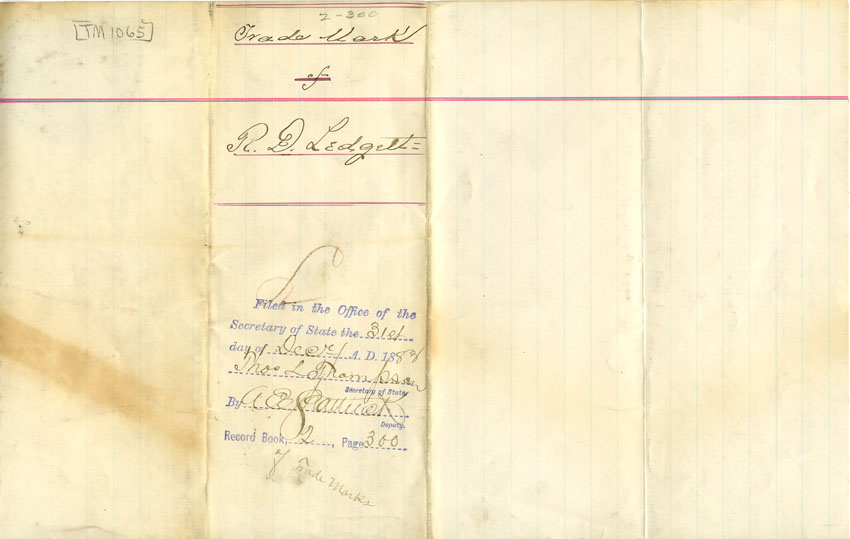 [TM 1065]
2-300
Trade Mark
of
R. D. Ledgett
Filed in the Office of the
Secretary of State the 31st
day of Decr A. D. 1883
Thos L Thompson
Secretary of State
By A E Shattuck
Deputy.
Record Book, 2, Page 300
of Trade Marks